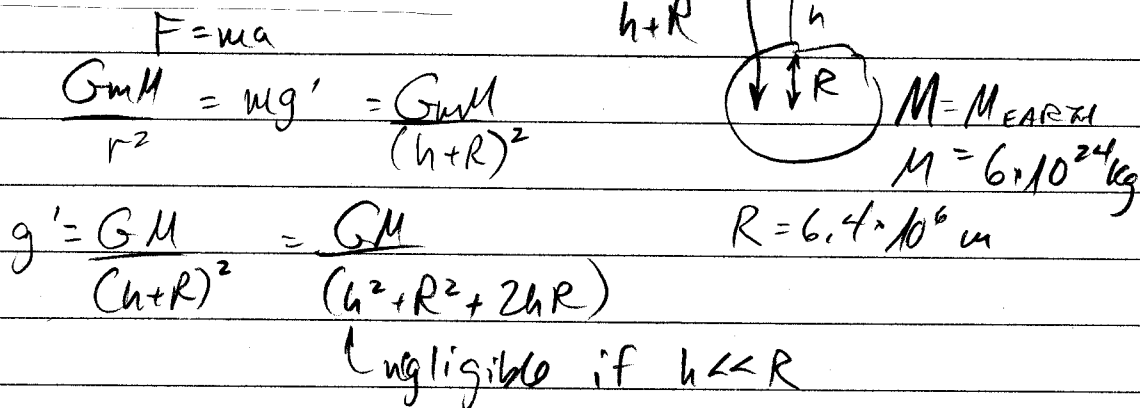 F = ma
h+R
h
R
GmM/r² = mg' = GmM/(h+R)²
M = M EARTH
M = 6·10²⁴ kg
R = 6.4·10⁶ m
g' = GM/(h+R)² = GM/(h²+R²+2hR)
negligible if h<<R